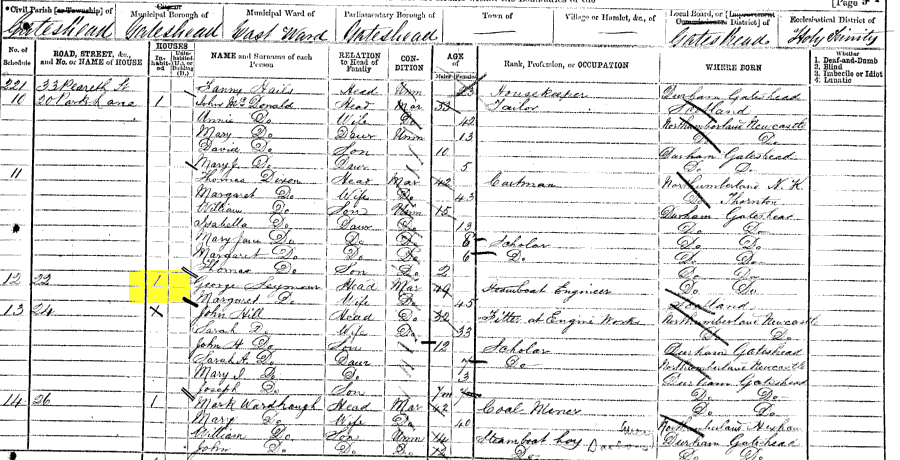 [Page 3
Civil Parish [or Township] of
Municipal Borough of
Municipal Ward of
Parliamentary Borough of
Town of
Village or Hamlet, &c., of
Local Board, or [Improvement District] of
Ecclesiastical District of
Gateshead Gateshead East Ward Gateshead — — Gateshead Holy Trinity
No. of Schedule
ROAD, STREET, &c., and No. or NAME of HOUSE
HOUSES
Inhabited
Uninhabited (U.), or Building (B.)
NAME and Surname of each Person
RELATION to Head of Family
CONDITION
AGE
Males Females
Rank, Profession, or OCCUPATION
WHERE BORN
Whether
1. Deaf-and-Dumb
2. Blind
3. Imbecile or Idiot
4. Lunatic
221 33 Peareth St Fanny Hails Head Unm 23 Housekeeper Durham Gateshead
10 20 Park Lane 1 John McDonald Head Mar 33 Tailor Scotland
Annie Do Wife Do 42 Northumberland Newcastle
Mary Do Daur Unm 13 Do Do
David Do Son 10 Durham Gateshead
Mary J. Do Daur 5 Do Do
11 Thomas Dixon Head Mar 42 Cartman Northumberland N. K.
Margaret Do Wife Do 43 Do Thornton
William Do Son Unm 15 Durham Gateshead
Isabella Do Daur Do 13 Do Do
Mary Jane Do Do Do 8 Scholar Do Do
Margaret Do Do Do 6 Do Do Do
Thomas Do Son Do 2 Do Do
12 22 1 George Seymour Head Mar 49 Steamboat Engineer Do Do
Margaret Do Wife Do 45 Scotland
13 24 John Hill Head Do 32 Fitter at Engine Works Northumberland Newcastle
Sarah Do Wife Do 33 Do Do
John H Do Son 12 Scholar Durham Gateshead
Sarah A. Do Daur 7 Do Northumberland Newcastle
Mary I. Do Do 3 Durham Gateshead
Joseph Do Son 7m Do Do
14 26 1 Mark Wardhaugh Head Mar 42 Coal Miner Do Do
Mary Do Wife Do 40 Northumberland Hexham
William Do Son Unm 14 Steamboat boy Durham Gateshead
John Do Do Do Do Do Do